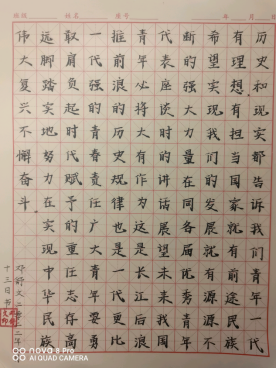 姓名
年 月 日
历史和现实都告诉我们青年一代
有理想有担当国家就有前途民族
希望实现我们的发展就有源源不
断的强大力量在同各届优秀青年
代表座谈时的讲话展望未来我国
青年必将大有作为这是长江后浪
推前浪的历史规律也是一代更比
一代强的青春责任广大青年要勇
取肩负起时代赋予的重任志存高
远脚踏实地努力在实现中华民族
伟大复兴不懈奋斗
十三日书
nova 8 Pro
AI QUAD CAMERA